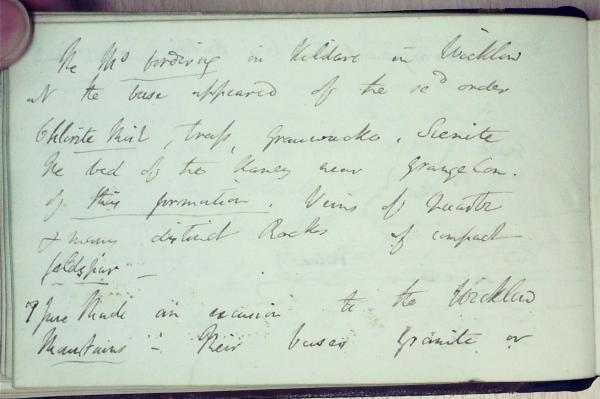 The Mts bordering on Kildare in Wicklow
at the base appeared of the 2d order
Chlorite Schist, trap, Grauwacke, Sienite
The bed of the Slaney near Grange Con.
of this formation. Veins of Quartz
& many distinct Rocks of compact
feldspar —
7 June Made an excursion to the Wicklow
Mountains — Their bases granite or